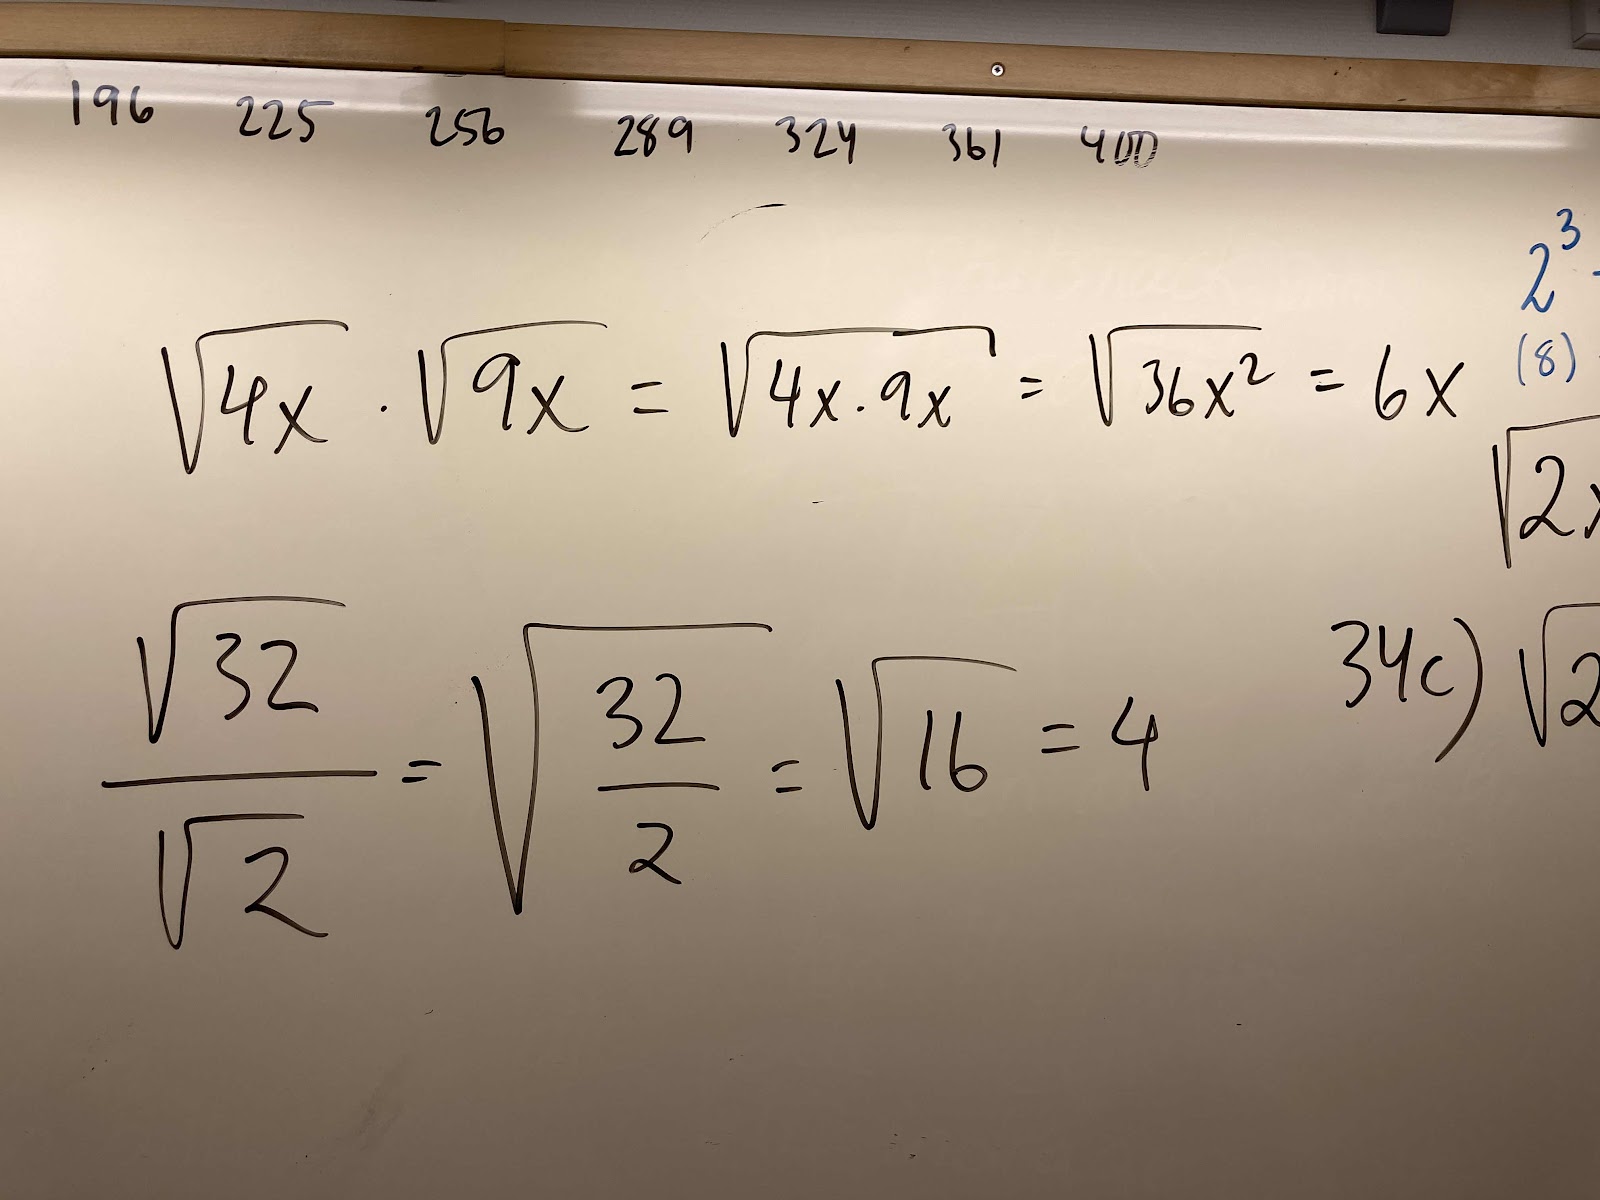 196 225 256 289 324 361 400
2³
(8)
√4x · √9x = √4x · 9x = √36x² = 6x
√2x
√32/√2 = √32/2 = √16 = 4
34c) √2